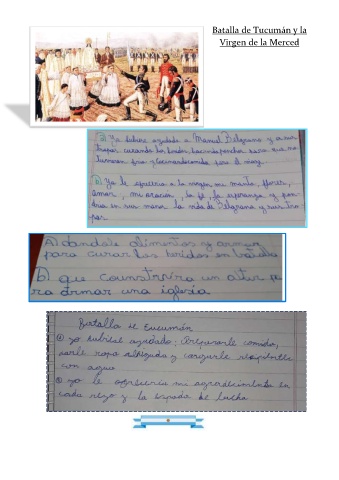 Batalla de Tucumán y la
Virgen de la Merced
a) Yo hubiera ayudado a Manuel Belgrano y a sus
tropas curando los heridos, haciendo ponchos para que no
tuvieran frío y cocinando comida para el
b) Yo le ofrecería a la virgen, un manto, flores,
amor, mi oración, la fe, la esperanza y pon
dría en sus manos la vida de Belgrano y sus tro
pas.
A) dandole alimentos y armas
para curar los heridos en batalla
b) que construira un altar pa
ra armar una iglesia
Batalla de Tucumán
a yo hubiese ayudado: Prepararle comida,
darle ropa abrigada y
con agua
b yo le ofrecería mi agradecimiento en
cada rezo y la espada de lucha